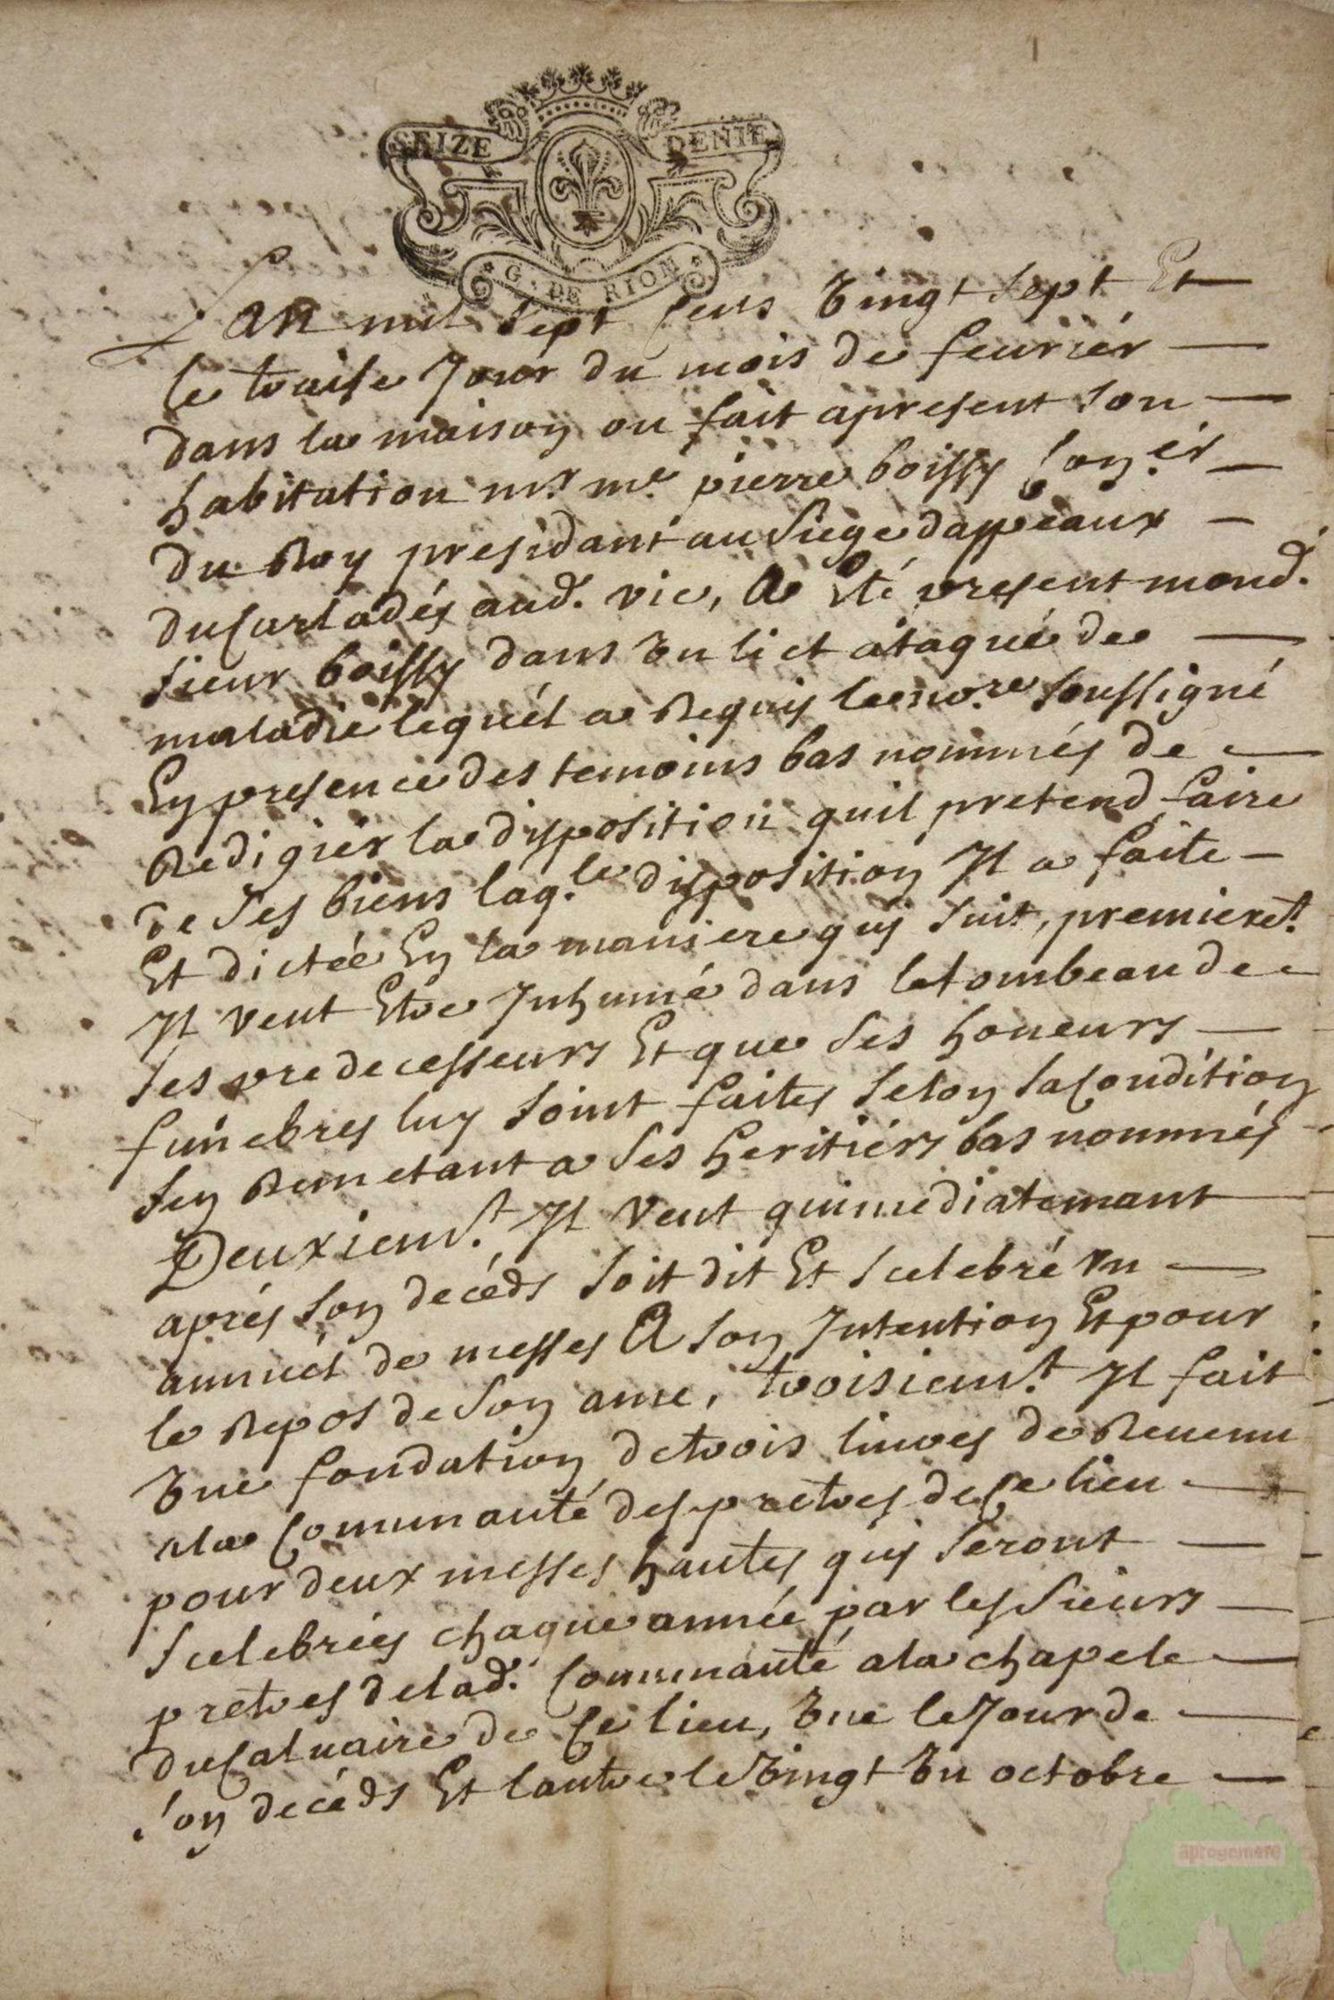 SEIZE DENIE
G. DE RIOM
Lan mil sept cens vingt sept Et
le traise Jour du mois de feurier
dans la maison ou fait apresent son
habitation mr. me. pierre boissy Con.er
du Roy presidant au siege dappeaux
du Carladés aud. vic, A Eté present mond.
sieur boissy dans un lict ataqué de
maladie lequél a Requis le no.re soussigné
En presence des temoins bas nommés de
Redigier la disposition quil pretend faire
de ses biens laq.le disposition Il a faite
Et dictée En la maniere quy suit, premieret.
Il veut Etre Inhumé dans le tombeau de
ses predecesseurs Et que ses honeurs
funebres luy soint faites selon sa Condition
sen Remetant a ses heritiérs bas nommés
Deuxiemt. Il veut quimediatemant
aprés son decéds soit dit Et scelebré un
annuel de messes A son Intention Et pour
le Repos de son ame, troisiemt. Il fait
une fondation de trois livres de Revenu
a la Communauté des pretres de Ce lieu
pour deux messes hautes quy seront
scelebrées chaque année par les sieurs
pretres de lad. Communauté a la chapele
du Calvaire de Ce lieu, une le Jour de
son decéds Et lautre le vingt un octobre
aprogemere